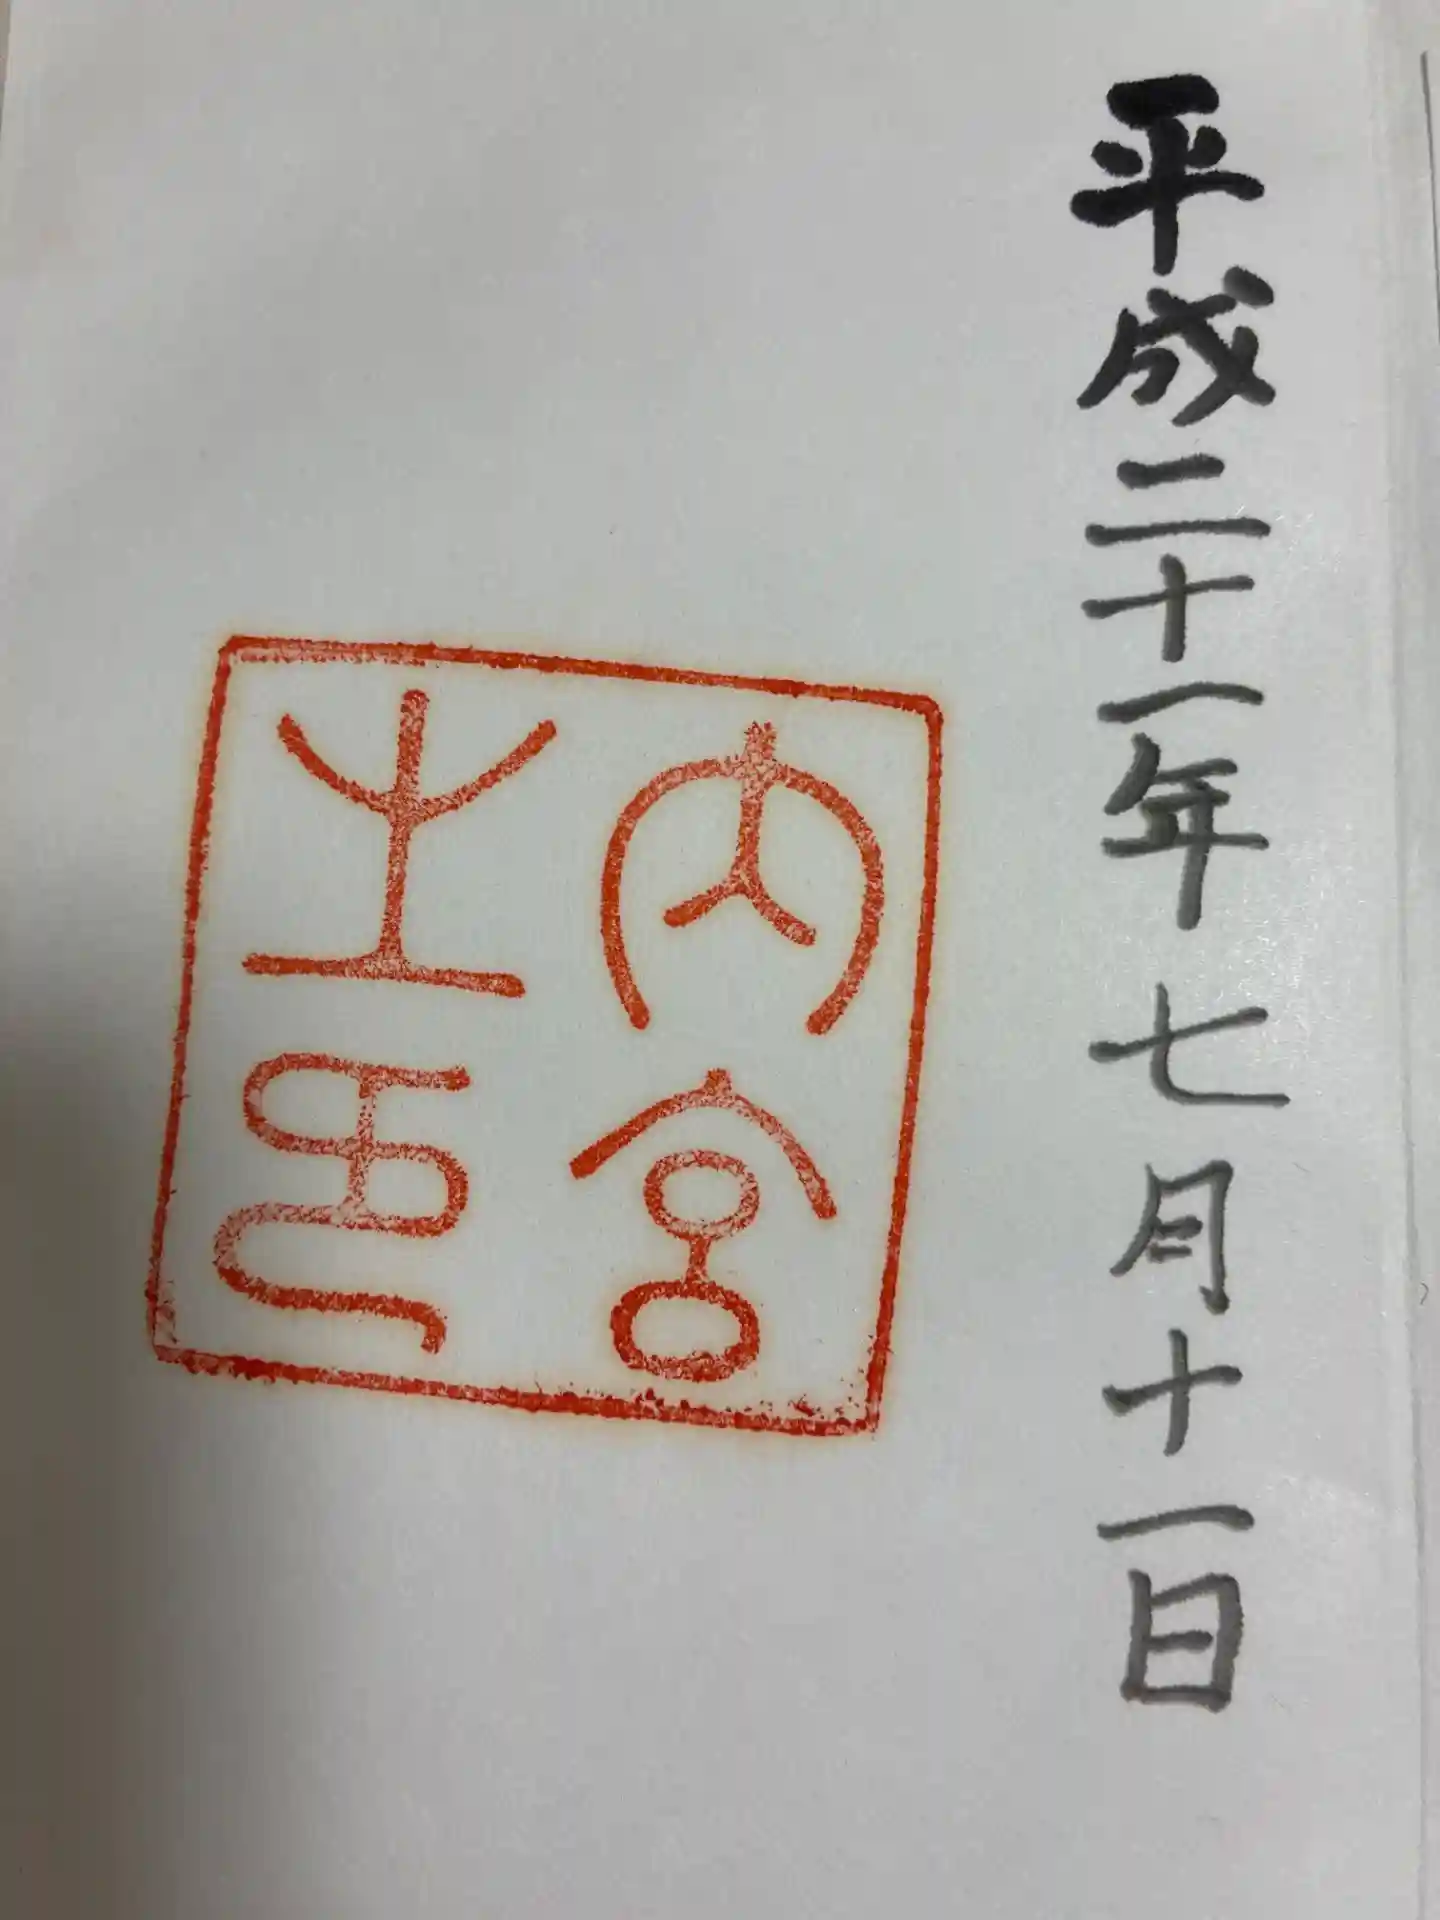 平成二十一年七月十一日
内宮
之印